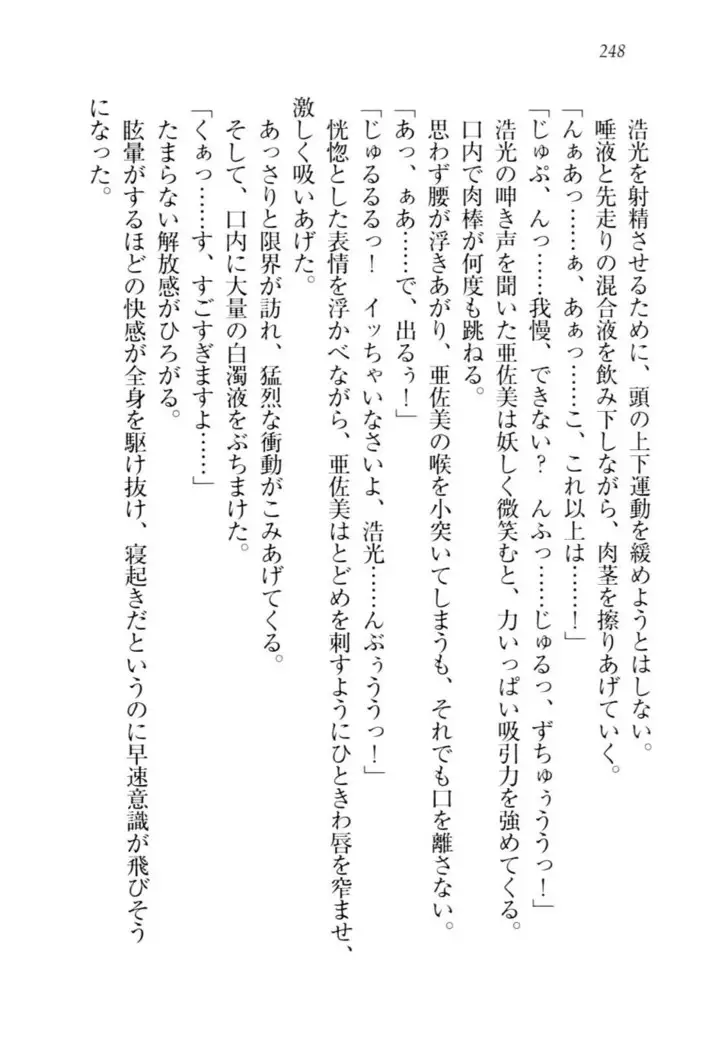 248
浩光を射精させるために、頭の上下運動を緩めようとはしない。
唾液と先走りの混合液を飲み下しながら、肉茎を擦りあげていく。
「んぁあっ……ぁ、あぁっ……こ、これ以上は……！」
「じゅぷ、んっ……我慢、できない？　んふっ……じゅるっ、ずちゅぅううっ！」
浩光の呻き声を聞いた亜佐美は妖しく微笑むと、力いっぱい吸引力を強めてくる。
口内で肉棒が何度も跳ねる。
思わず腰が浮きあがり、亜佐美の喉を小突いてしまうも、それでも口を離さない。
「あっ、ぁあ……で、出るぅ！」
「じゅるるるっ！　イッちゃいなさいよ、浩光……んぶぅううっ！」
恍惚とした表情を浮かべながら、亜佐美はとどめを刺すようにひときわ唇を窄ませ、
激しく吸いあげた。
あっさりと限界が訪れ、猛烈な衝動がこみあげてくる。
そして、口内に大量の白濁液をぶちまけた。
「くぁっ……す、すごすぎますよ……」
たまらない解放感がひろがる。
眩暈がするほどの快感が全身を駆け抜け、寝起きだというのに早速意識が飛びそう
になった。